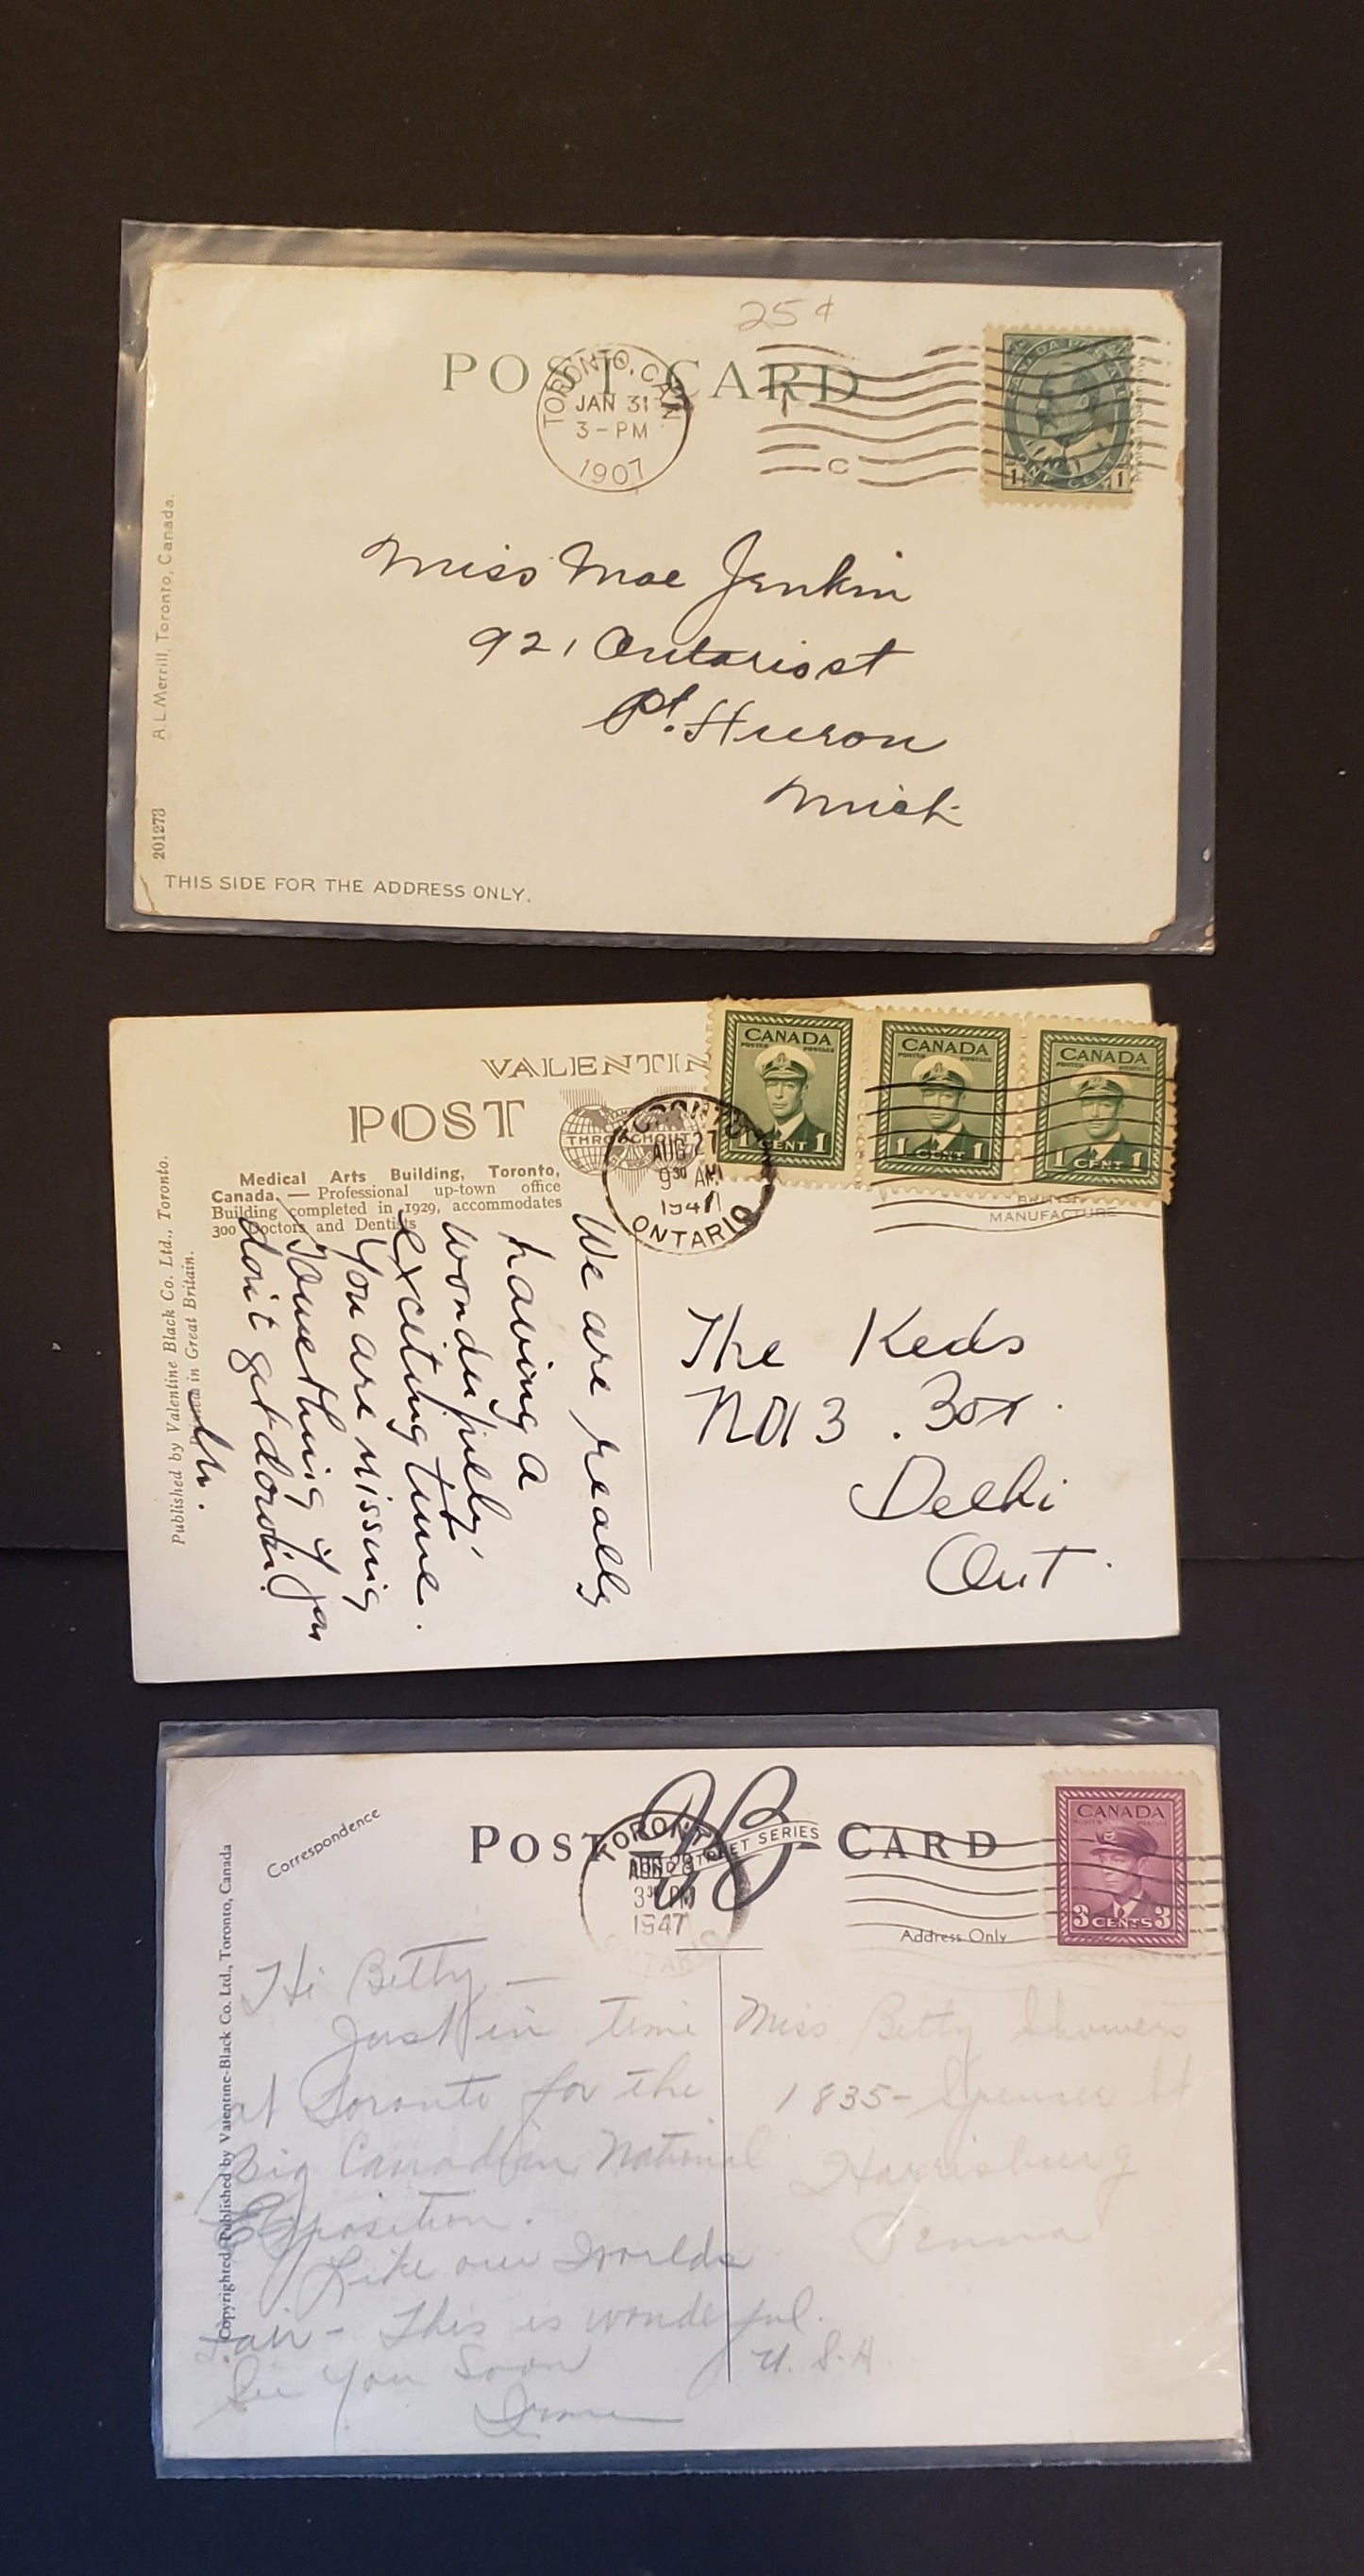 25¢
POST CARD
TORONTO, CAN.
JAN 31
3-PM
1907
C
CANADA POSTAGE
ONE CENT
1 1
Miss Mae Jenkin
921 Ontario st
Pt. Huron
Mich
A.L. Merrill, Toronto, Canada.
201273
THIS SIDE FOR THE ADDRESS ONLY.
VALENTIN
POST
CANADA
POSTES POSTAGE
1 CENT 1
CANADA
POSTES POSTAGE
1 CENT 1
CANADA
POSTES POSTAGE
1 CENT 1
TORONTO
AUG 27
9 30 AM
1947
ONTARIO
Medical Arts Building, Toronto,
Canada. — Professional up-town office
Building completed in 1929, accommodates
300 Doctors and Dentists
MANUFACTURE
Published by Valentine Black Co. Ltd., Toronto.
Printed in Great Britain.
We are really
having a
wonderfully
exciting time.
You are missing
Something if you
don't get down!
The Keds
Box
Delhi
Ont.
Correspondence
POST CARD
BOND STREET SERIES
TORONTO
AUG
3 30 PM
1947
ONTARIO
CANADA
POSTES POSTAGE
3 CENTS 3
Address Only
Copyrighted Published by Valentine-Black Co. Ltd., Toronto, Canada
Hi Betty —
Just in time
at Toronto for the
Big Canadian National
Exposition.
Like our Worlds
Fair - This is wonderful.
See You Soon
Miss Betty Showers
1835 - Spencer St
Harrisburg
Penna
U.S.A.